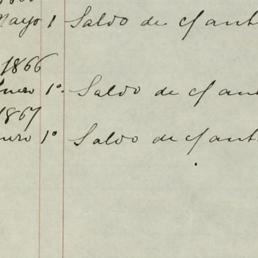 Mayo 1 Saldo de c/ ant
1866
Enero 1º. Saldo de c/ an
1867
nero 1º Saldo de c/ ant